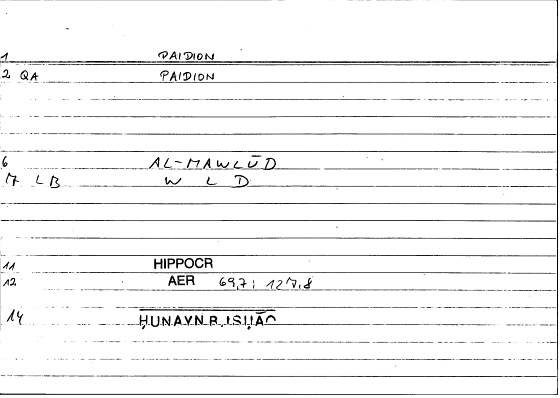 1 PAIDION
2 QA PAIDION
6 AL-MAWLŪD
7 LB W L D
11 HIPPOCR
12 AER 69,7; 127,8
14 ḤUNAYN B. ISḤĀQ